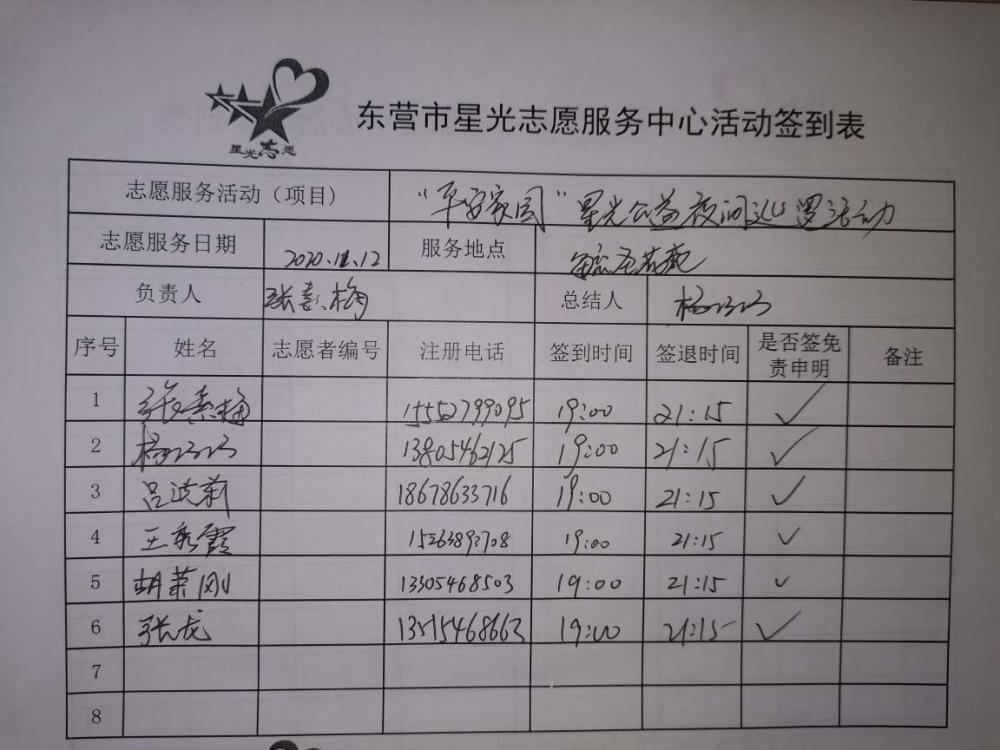 星光志愿
东营市星光志愿服务中心活动签到表
志愿服务活动（项目） “平安家园”星光公益夜间巡逻活动
志愿服务日期 服务地点
负责人 总结人
序号 姓名 志愿者编号 注册电话 签到时间 签退时间 是否签免责申明 备注
1 张素梅 15552799095 19:00 21:15 ✓
2 13805462125 19:00 21:15 ✓
3 吕洪莉 18678633716 19:00 21:15 ✓
4 王秀霞 19:00 21:15 ✓
5 胡荣刚 13305468503 19:00 21:15 ✓
6 张龙 19:00 21:15 ✓
7
8